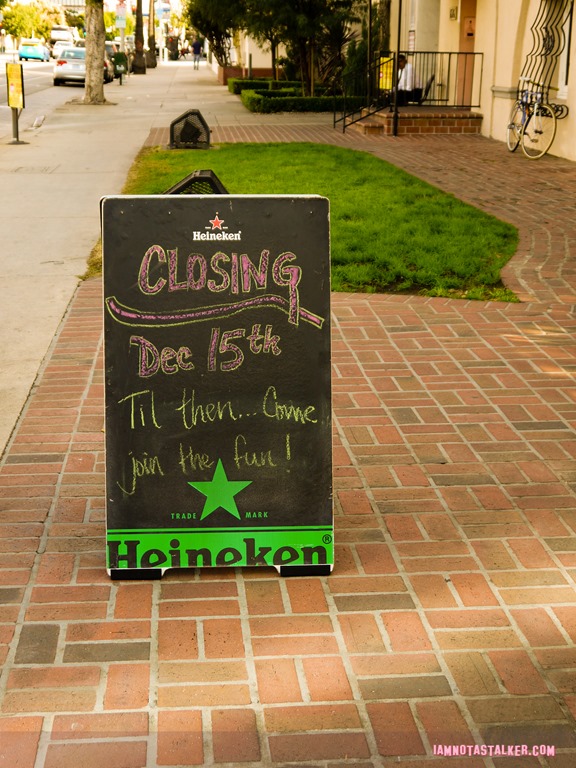 Heineken
CLOSING
Dec 15th
Til then... Come
join the fun!
TRADE MARK
Heineken®
IAMNOTASTALKER.COM